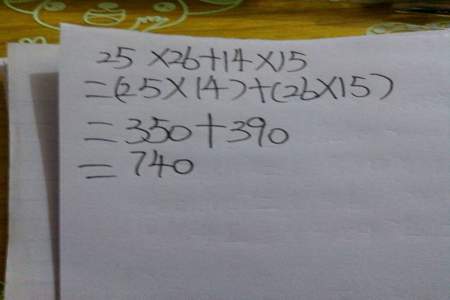 25×26+14×15
=(25×14)+(26×15)
=350+390
=740